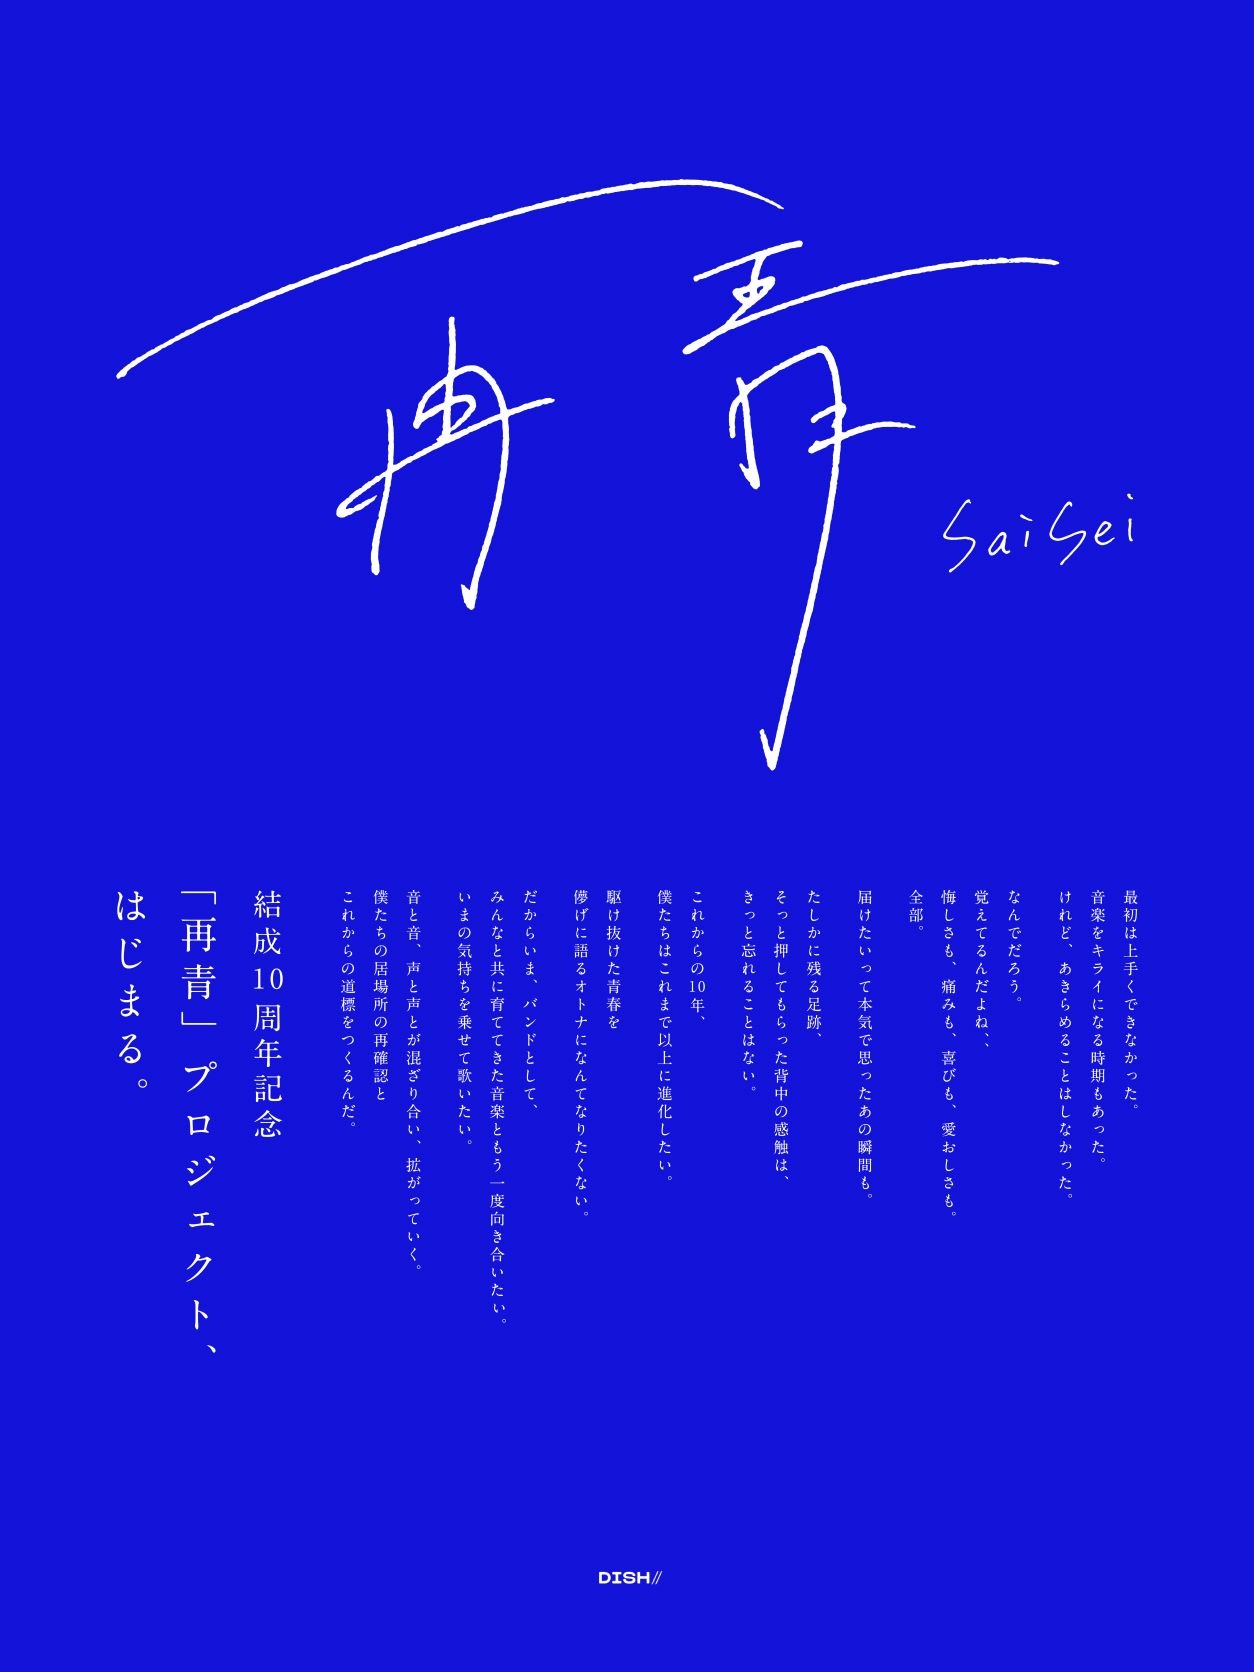 再青
SaiSei
最初は上手くできなかった。
音楽をキライになる時期もあった。
けれど、あきらめることはしなかった。
なんでだろう。
覚えてるんだよね、、
悔しさも、痛みも、喜びも、愛おしさも。
全部。
届けたいって本気で思ったあの瞬間も。
たしかに残る足跡、
そっと押してもらった背中の感触は、
きっと忘れることはない。
これからの10年、
僕たちはこれまで以上に進化したい。
駆け抜けた青春を
儚げに語るオトナになんてなりたくない。
だからいま、バンドとして、
みんなと共に育ててきた音楽ともう一度向き合いたい。
いまの気持ちを乗せて歌いたい。
音と音、声と声とが混ざり合い、拡がっていく。
僕たちの居場所の再確認と
これからの道標をつくるんだ。
結成10周年記念
「再青」プロジェクト、
はじまる。
DISH//